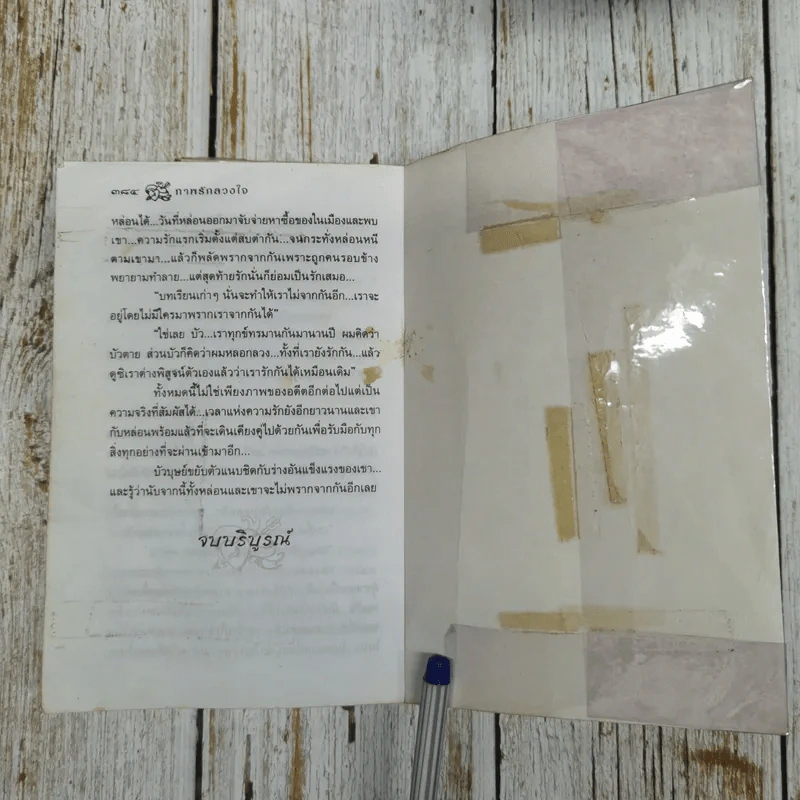 ๓๘๔ ภาพรักลวงใจ
หล่อนได้...วันที่หล่อนออกมาจับจ่ายหาซื้อของในเมืองและพบ
เขา...ความรักแรกเริ่มตั้งแต่สบตากัน...จนกระทั่งหล่อนหนี
ตามเขามา...แล้วก็พลัดพรากจากกันเพราะถูกคนรอบข้าง
พยายามทำลาย...แต่สุดท้ายรักนั่นก็ย่อมเป็นรักเสมอ...
“บทเรียนเก่าๆ นั่นจะทำให้เราไม่จากกันอีก...เราจะ
อยู่โดยไม่มีใครมาพรากเราจากกันได้”
“ใช่เลย บัว...เราทุกข์ทรมานกันมานานปี ผมคิดว่า
บัวตาย ส่วนบัวก็คิดว่าผมหลอกลวง...ทั้งที่เรายังรักกัน...แล้ว
ดูซิเราต่างพิสูจน์ตัวเองแล้วว่าเรารักกันได้เหมือนเดิม”
ทั้งหมดนี้ไม่ใช่เพียงภาพของอดีตอีกต่อไปแต่เป็น
ความจริงที่สัมผัสได้...เวลาแห่งความรักยังอีกยาวนานและเขา
กับหล่อนพร้อมแล้วที่จะเดินเคียงคู่ไปด้วยกันเพื่อรับมือกับทุก
สิ่งทุกอย่างที่จะผ่านเข้ามาอีก...
บัวบุษย์ขยับตัวแนบชิดกับร่างอันแข็งแรงของเขา...
และรู้ว่านับจากนี้ทั้งหล่อนและเขาจะไม่พรากจากกันอีกเลย
จบบริบูรณ์